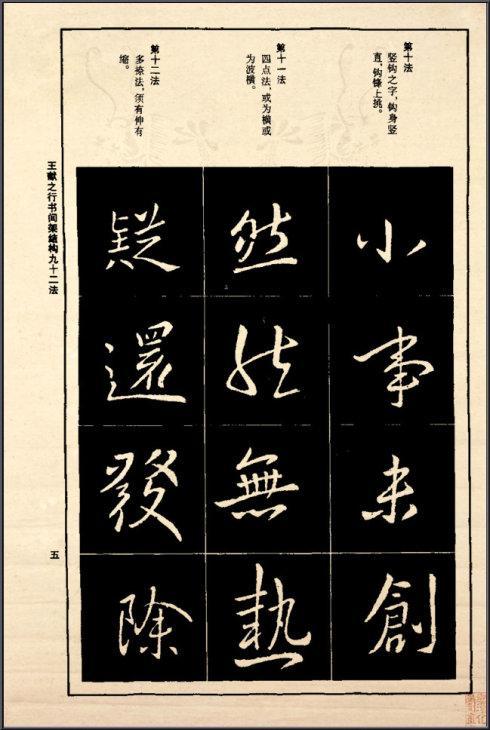 第十法
竖钩之字，钩身竖
直，钩锋上挑。
第十一法
四点法，或为横或
为波横。
第十二法
多捺法，须有伸有
缩。
小事未創
然然無熱
疑還發除
王献之行书间架结构九十二法
五